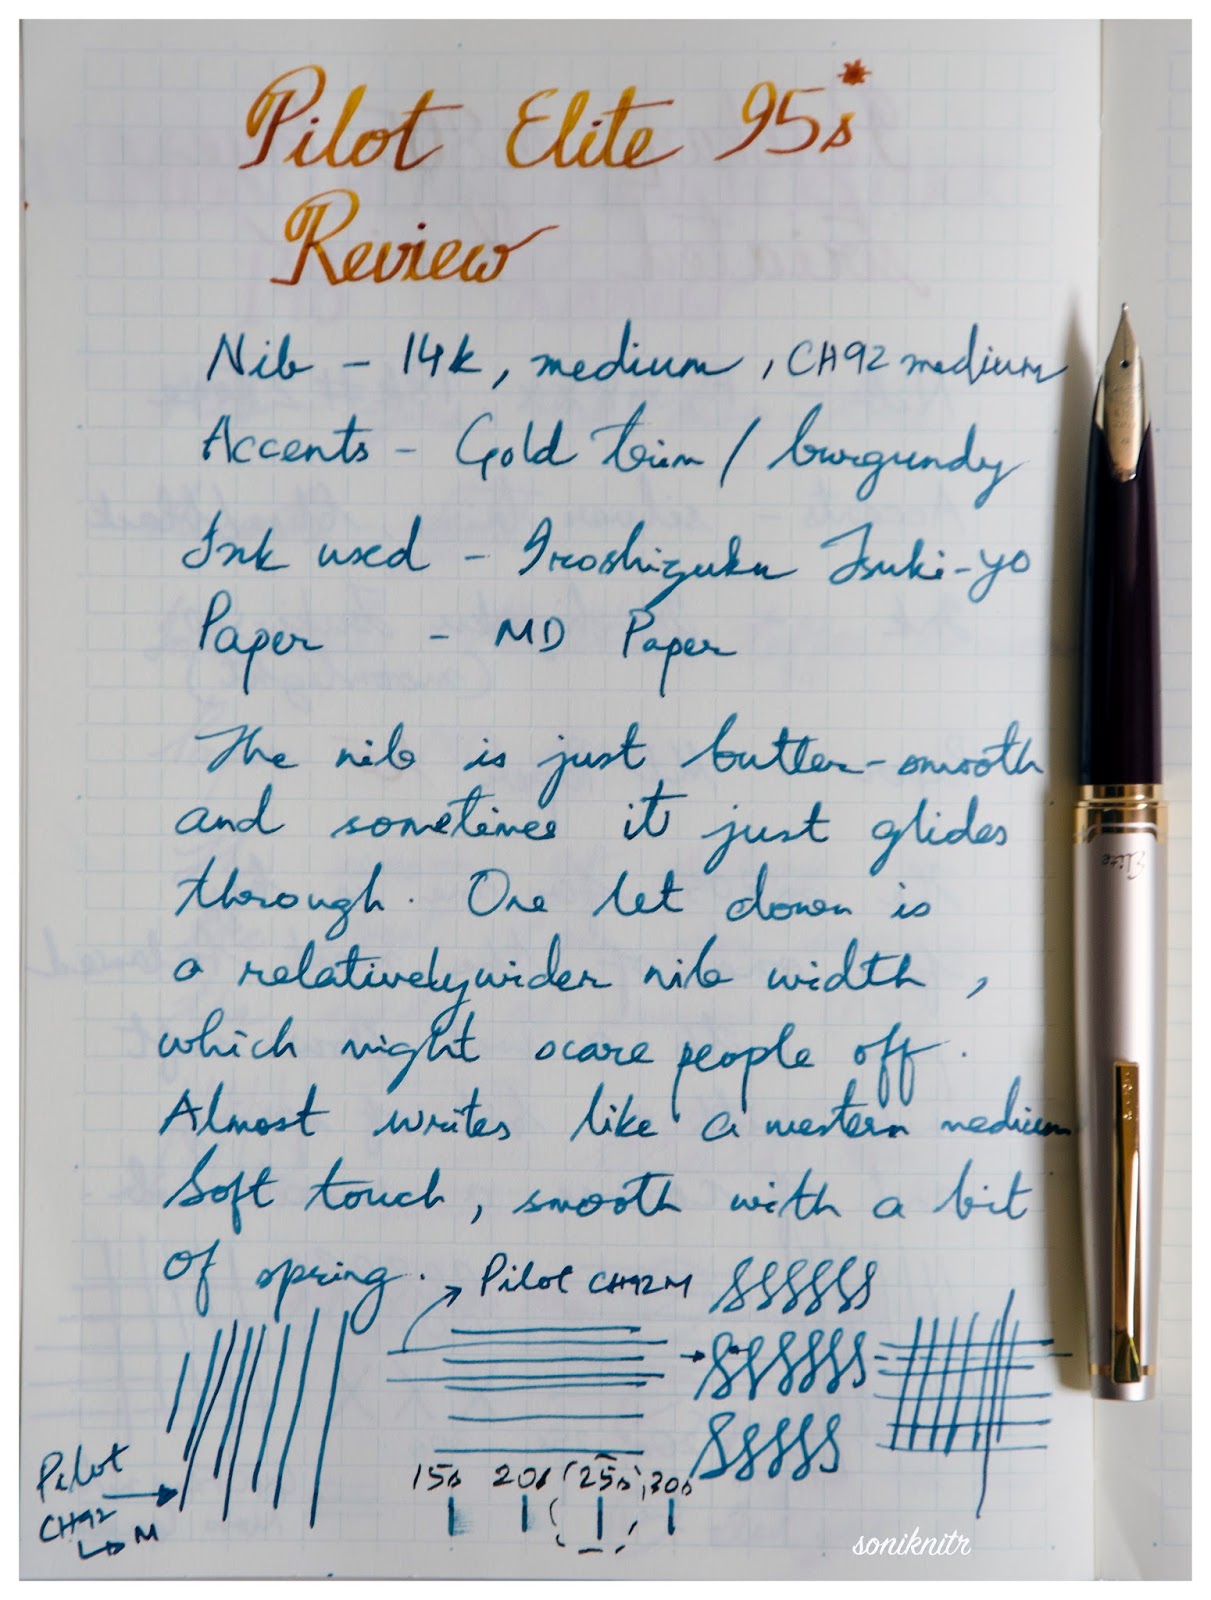 Pilot Elite 95s*
Review
Nib - 14k, medium, CH92 medium
Accents - Gold trim / burgundy
Ink used - Iroshizuku Tsuki-yo
Paper - MD Paper
The nib is just butter-smooth
and sometimes it just glides
through. One let down is
a relatively wider nib width,
which might scare people off.
Almost writes like a western medium
Soft touch, smooth with a bit
of spring.
Pilot CH92M
Pilot
CH92
M
15s 20s (25s) 30s
Elite
soniknitr